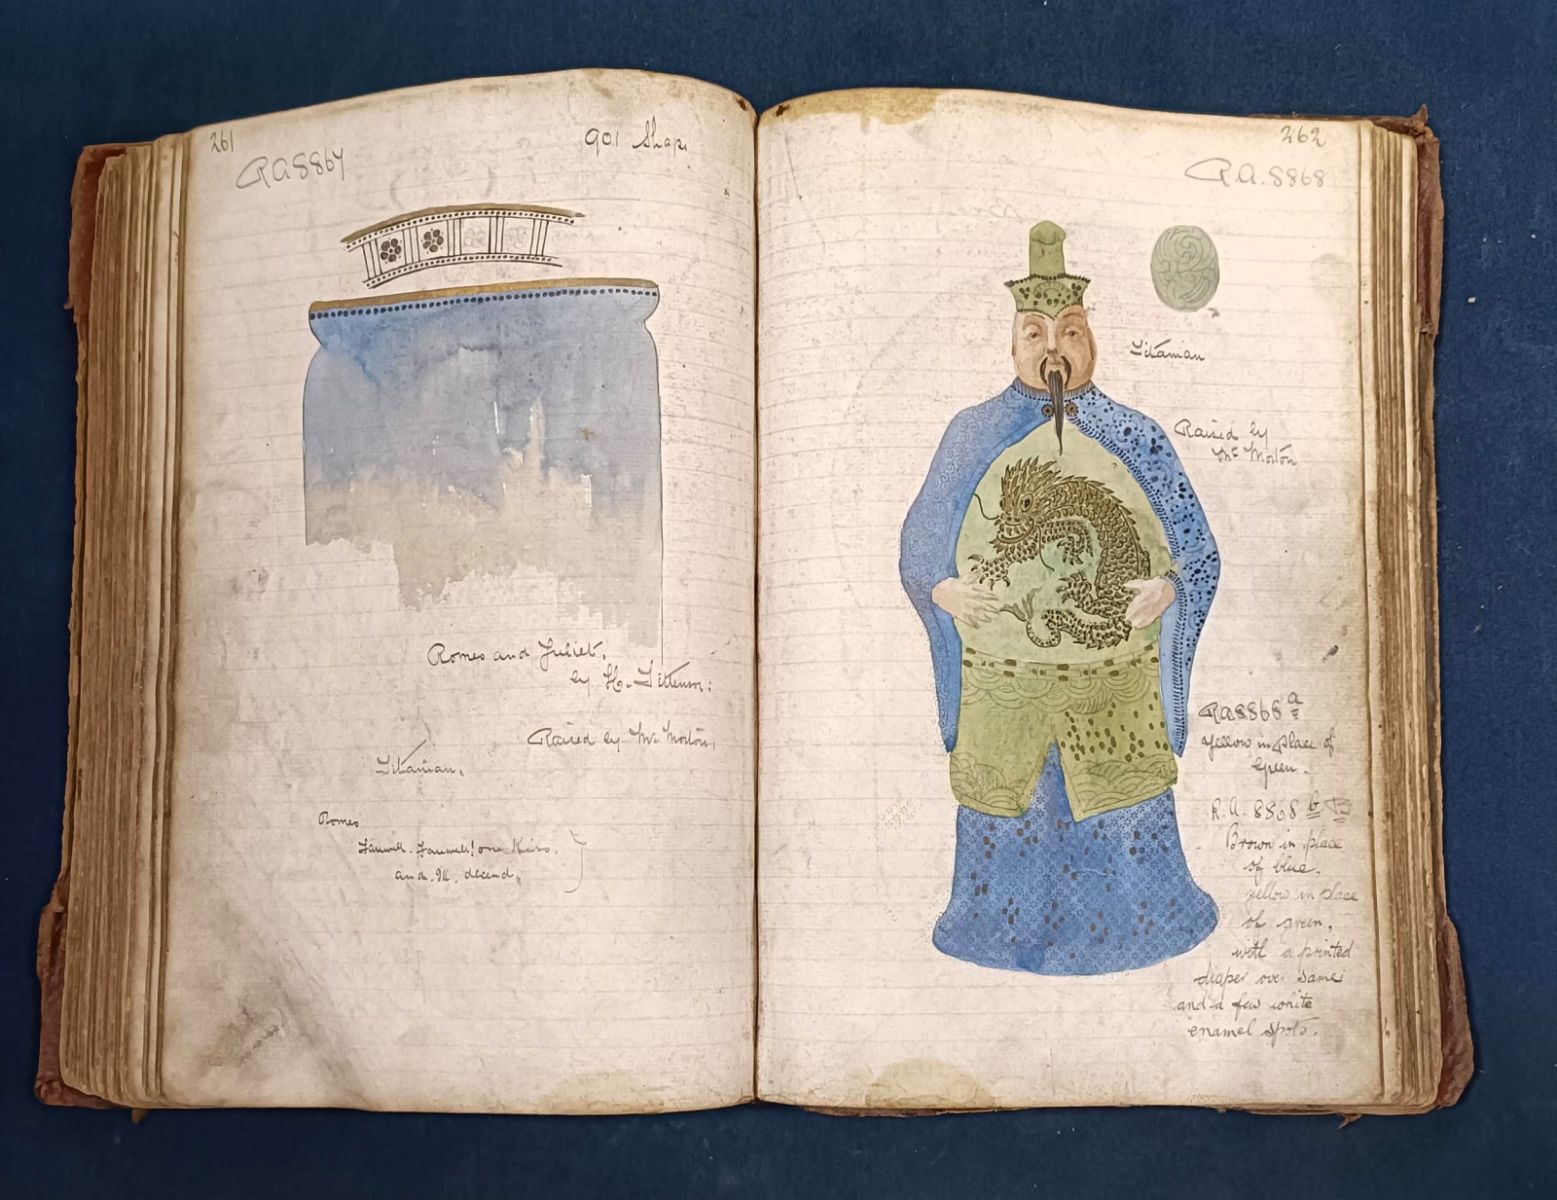 261
RA8867
901 Shape
Romeo and Juliet.
by H. Tittensor:
Raised by Mr Morton.
Titanian.
Romeo
Farewell. Farewell! one Kiss.
and I'll decend.
262
R.A. 8868
Titanian
Raised by
Mr Morton
RA8868 a
Yellow in place of
Green.
R.A. 8868 b
Brown in place
of blue.
yellow in place
of green,
with a printed
diaper over same
and a few white
enamel spots.